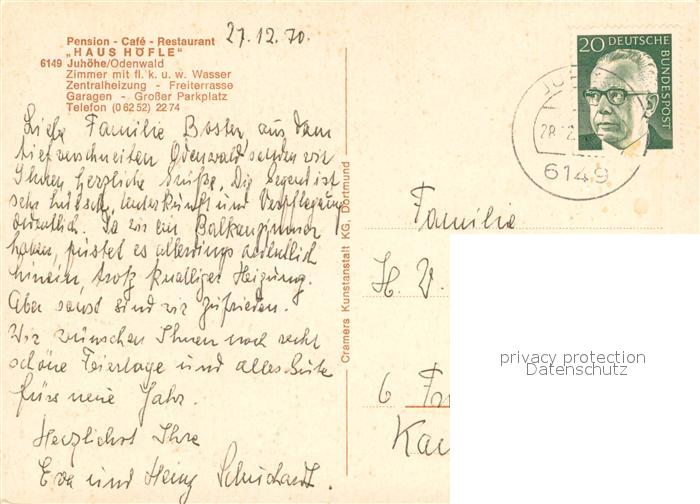 Pension - Café - Restaurant
„HAUS HÖFLE"
6149 Juhöhe/Odenwald
Zimmer mit fl. k. u. w. Wasser
Zentralheizung - Freiterrasse
Garagen - Großer Parkplatz
Telefon (0 62 52) 22 74
27.12.70.
Liebe Familie Boster, aus dem
tief verschneiten Odenwald senden wir
Ihnen herzliche Grüße. Die Gegend ist
sehr hübsch, Unterkunft und Verpflegung
ordentlich. Da wir ein Balkonzimmer
haben, pustet es allerdings ordentlich
hinein, trotz knalliger Heizung.
Aber sonst sind wir zufrieden.
Wir wünschen Ihnen noch recht
schöne Feiertage und alles Gute
fürs neue Jahr.
Herzlichst Ihre
Eva und Heinz Schuchardt.
Cramers Kunstanstalt KG, Dortmund
20 DEUTSCHE
BUNDESPOST
28.12.
6149
Familie
H. V.
6
privacy protection
Datenschutz